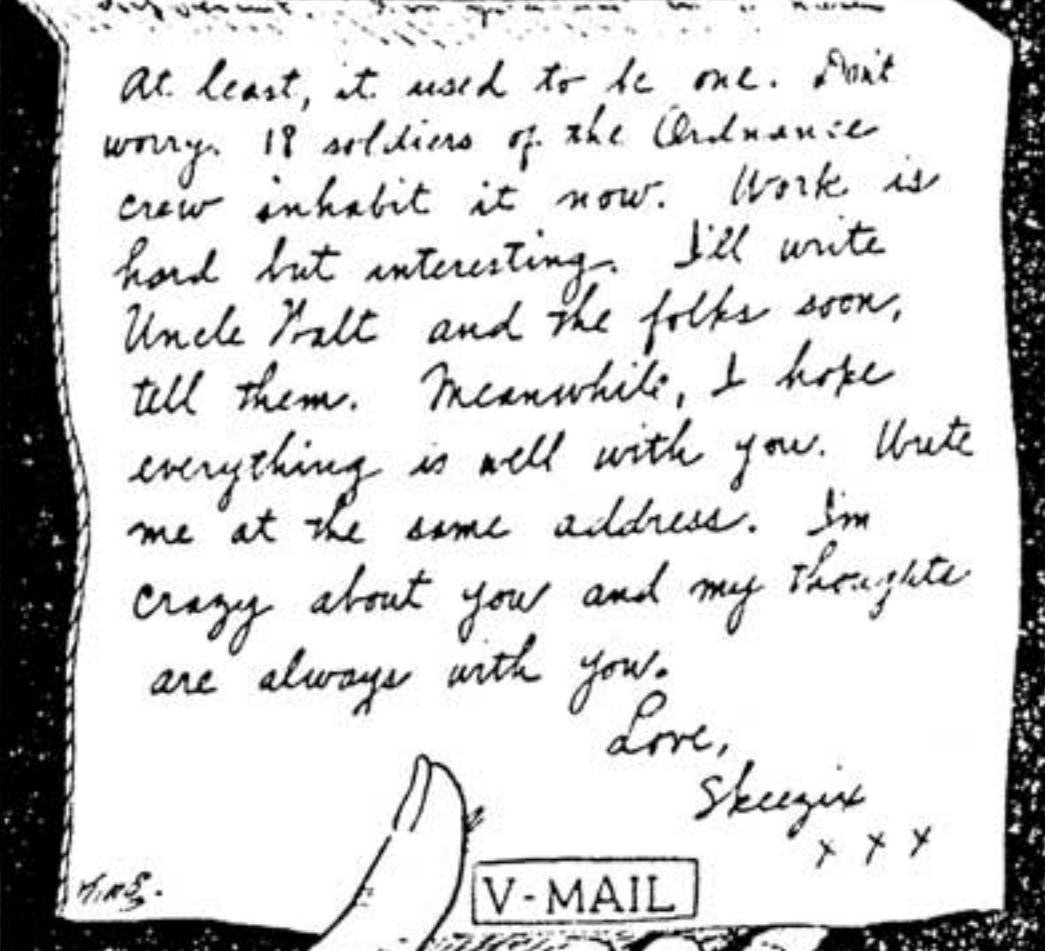 At least, it used to be one. Don't
worry. 18 soldiers of the Ordnance
crew inhabit it now. Work is
hard but interesting. I'll write
Uncle Walt and the folks soon,
tell them. Meanwhile, I hope
everything is well with you. Write
me at the same address. I'm
crazy about you and my thoughts
are always with you.
Love,
Skeezix
x x x
V-MAIL